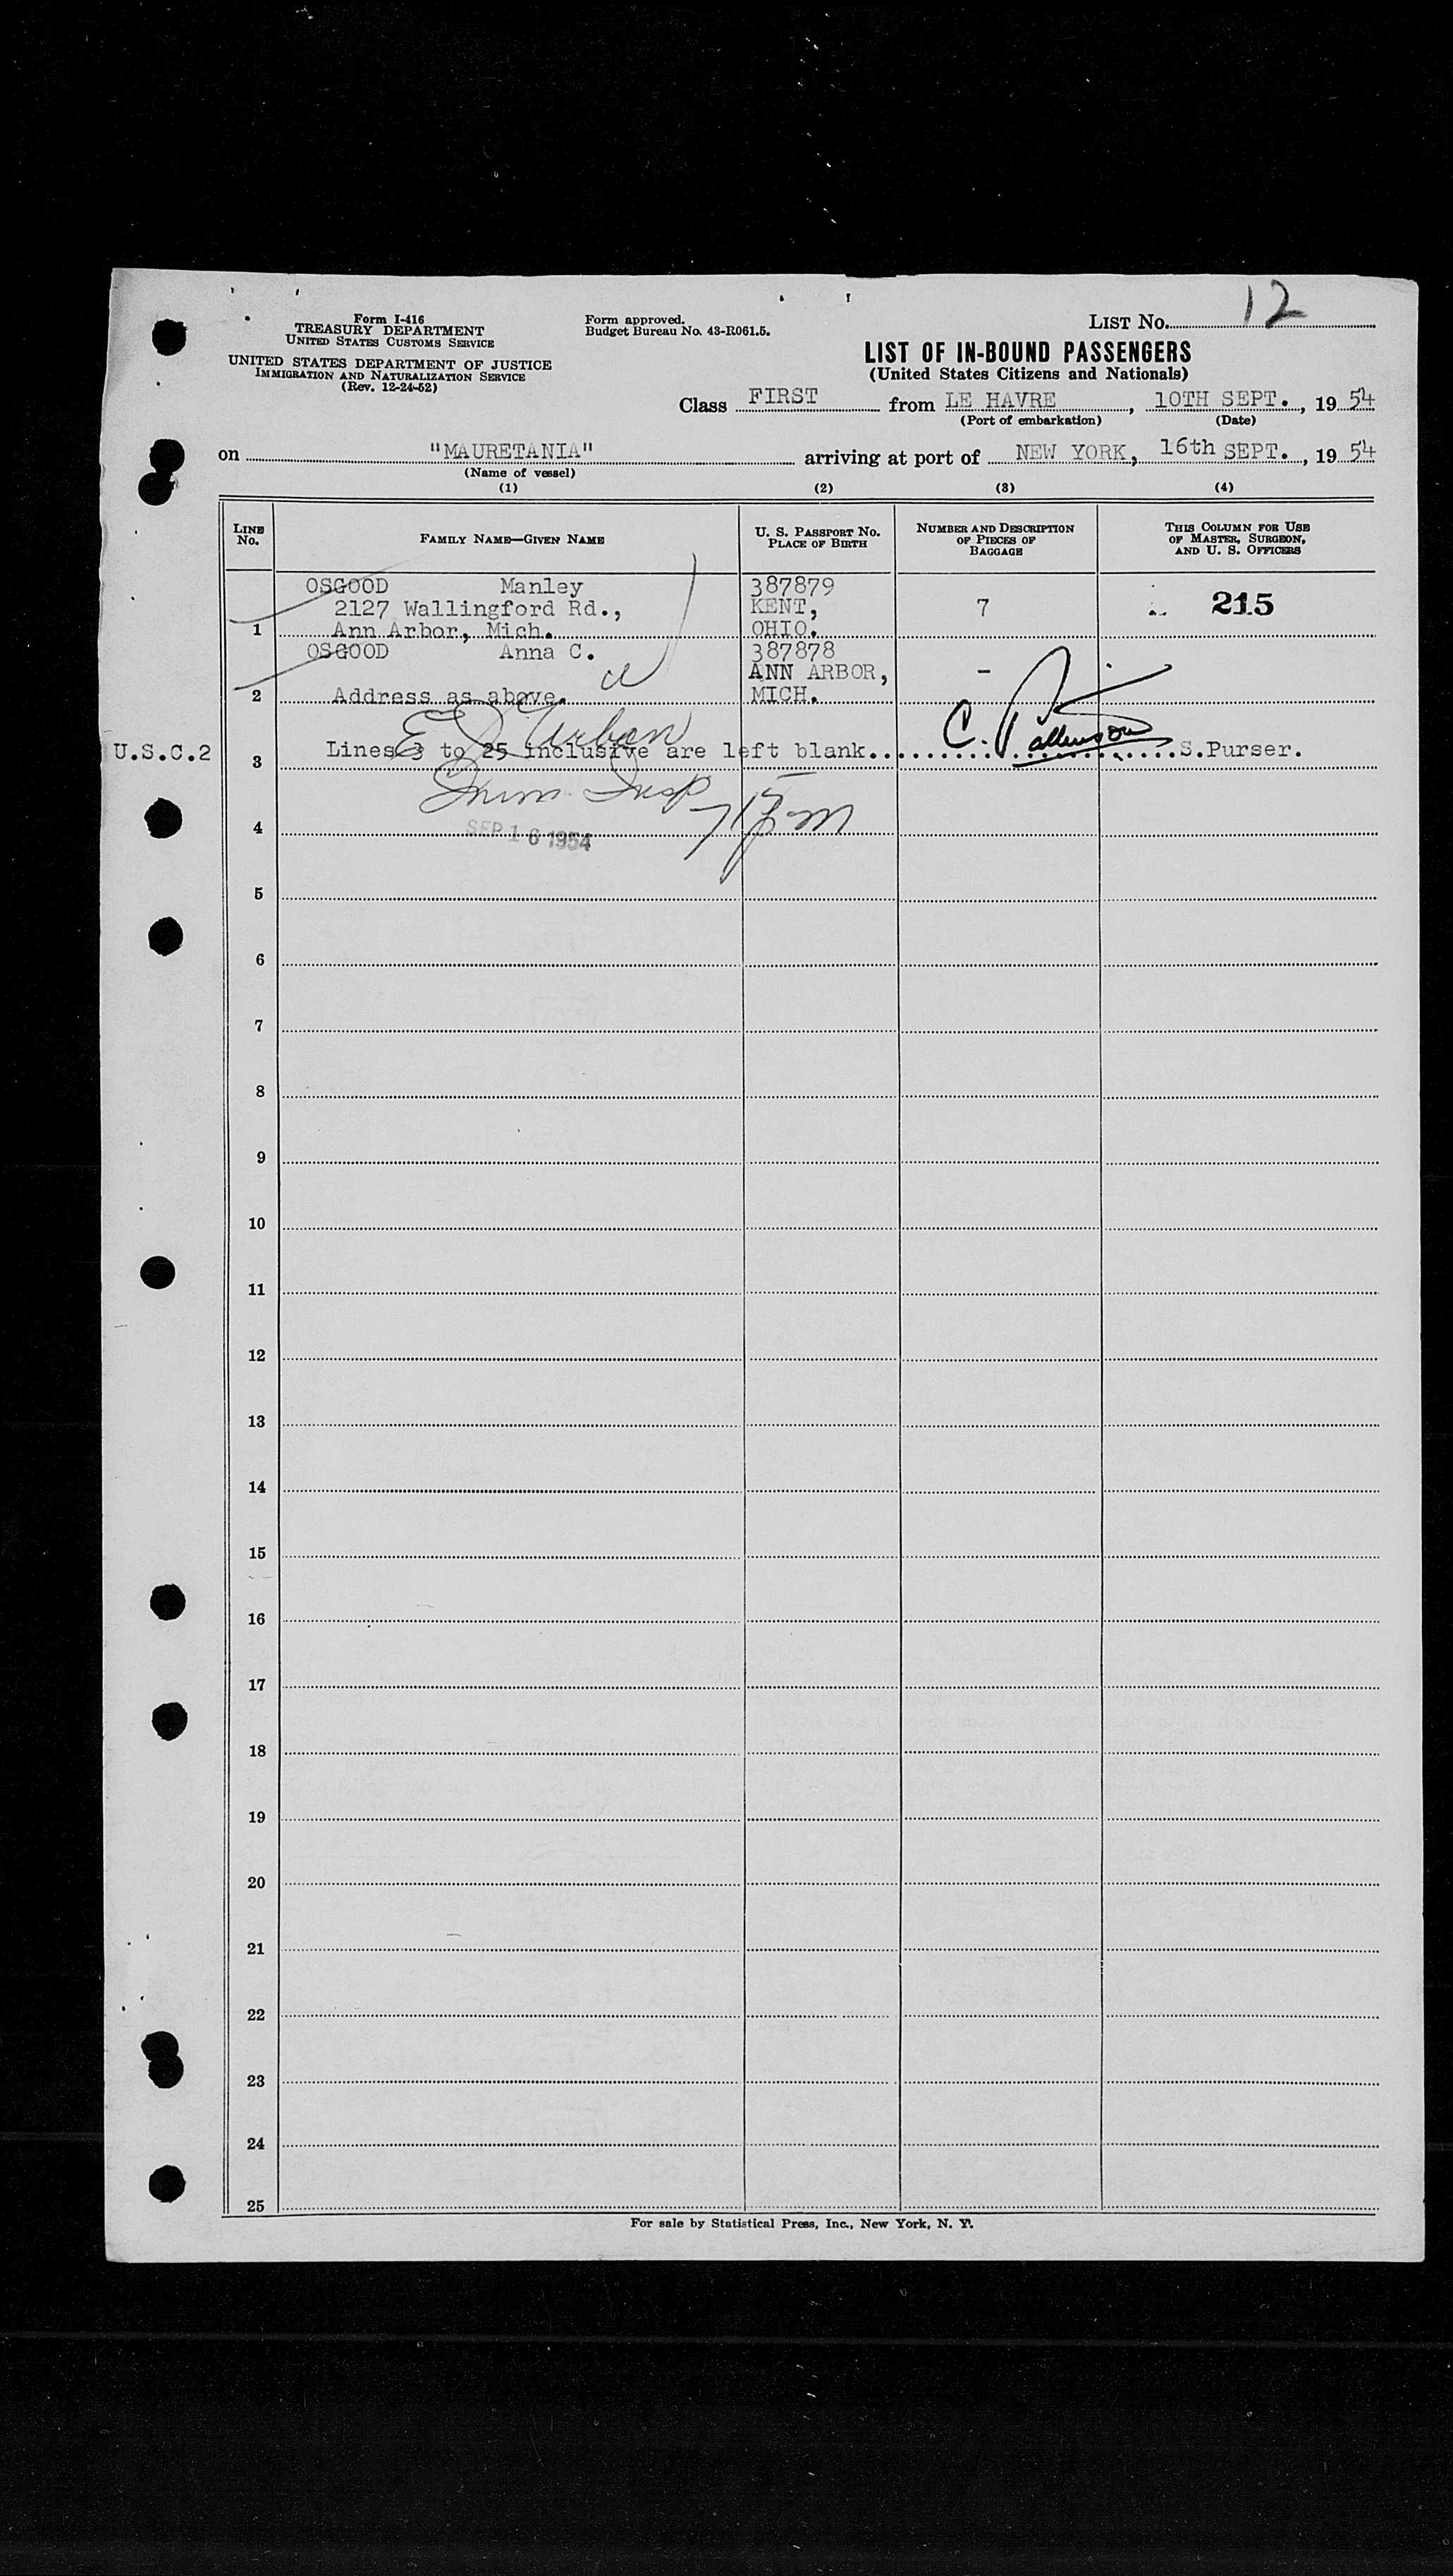 LIST No. 12
Form I-416
TREASURY DEPARTMENT
UNITED STATES CUSTOMS SERVICE
UNITED STATES DEPARTMENT OF JUSTICE
IMMIGRATION AND NATURALIZATION SERVICE
(Rev. 12-24-52)
Form approved.
Budget Bureau No. 43-R061.5.
LIST OF IN-BOUND PASSENGERS
(United States Citizens and Nationals)
Class FIRST from LE HAVRE, 10TH SEPT., 19 54
(Port of embarkation) (Date)
on "MAURETANIA" arriving at port of NEW YORK, 16th SEPT., 19 54
(Name of vessel)
(1) (2) (3) (4)
LINE No. FAMILY NAME—GIVEN NAME U. S. PASSPORT No. PLACE OF BIRTH NUMBER AND DESCRIPTION OF PIECES OF BAGGAGE THIS COLUMN FOR USE OF MASTER, SURGEON, AND U. S. OFFICERS
OSGOOD Manley 387879
2127 Wallingford Rd., KENT, 7 215
1 Ann Arbor, Mich. OHIO.
OSGOOD Anna C. 387878
ANN ARBOR, -
2 Address as above. MICH.
E J Urban
U.S.C.2 3 Lines 3 to 25 inclusive are left blank. C. Patkinson S.Purser.
Imm. Insp
4 SEP 16 1954
5
6
7
8
9
10
11
12
13
14
15
16
17
18
19
20
21
22
23
24
25
For sale by Statistical Press, Inc., New York, N. Y.